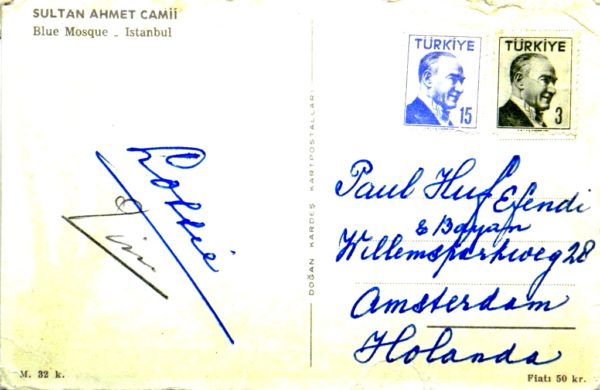 SULTAN AHMET CAMİİ
Blue Mosque _ Istanbul
TÜRKİYE
15
TÜRKİYE
3
Lottie
DOĞAN KARDEŞ KARTPOSTALLARI
Paul Huf Efendi
& Bayan
Willemsparkweg 28
Amsterdam
Holanda
M. 32 k.
Fiatı 50 kr.